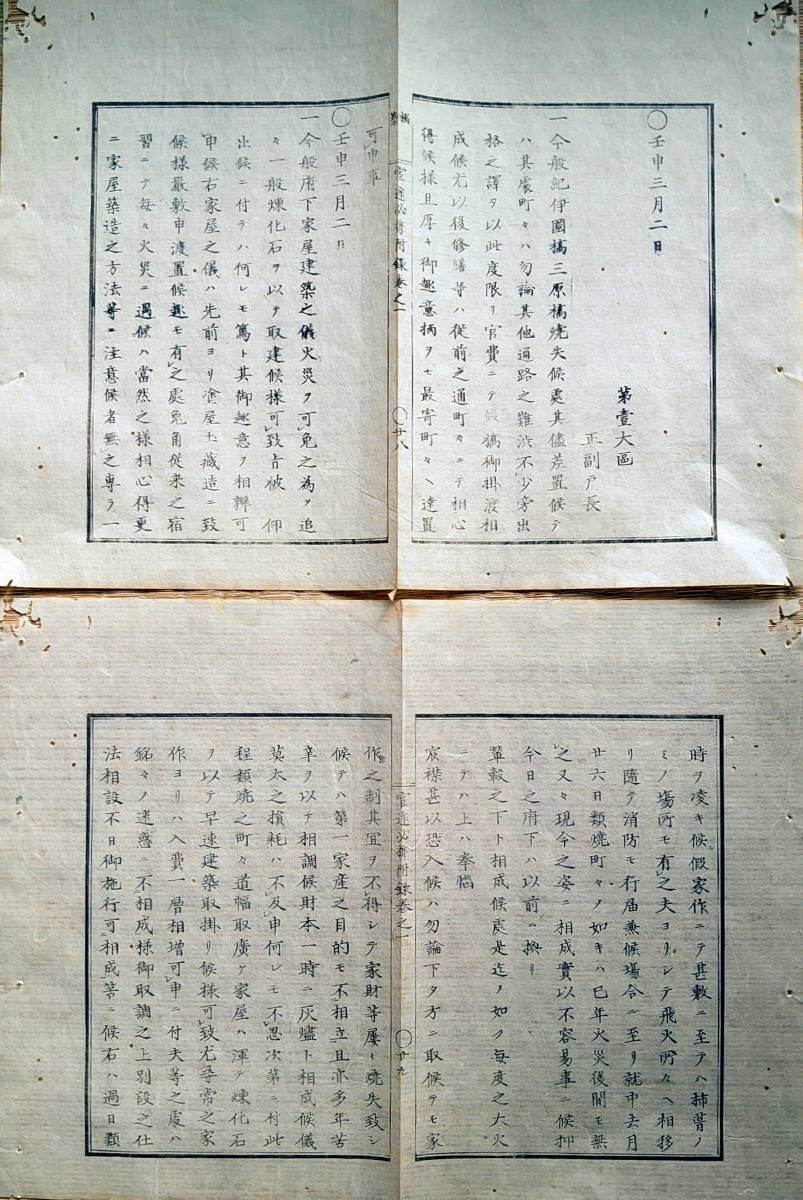 〇壬申三月二日
第壹大區
正副戸長
一今般紀伊國橋三原橋焼失候處其儘差置候テ
ハ其最町々ハ勿論其他通路之難渋不少旁出
格之譯ヲ以此度限リ官費ニテ假橋御掛渡相
成候尤以後修繕等ハ従前之通町々ニテ相心
得候様且厚キ御趣意柄ヲモ最寄町々ヘ達置
可申事
官途必携附録巻之一
〇廿八
〇壬申三月二日
一今般府下家屋建築之儀火災ヲ可免之為メ追
々一般煉化石ヲ以テ取建候様可致旨被 仰
出候ニ付テハ何レモ篤ト其御趣意ヲ相辨可
申候右家屋之儀ハ先前ヨリ塗屋土藏造ニ致
候様嚴敷申渡置候趣モ有之處兎角従来之宿
習ニテ毎々火災ニ遇候ハ當然之様相心得更
ニ家屋築造之方法等ニ注意候者無之専ラ一
時ヲ凌キ候假家作ニテ甚敷ニ至テハ柿葺ノ
ミノ場所モ有之夫ヨリシテ飛火所々ヘ相移
リ隨テ消防モ行届兼候場合ニ至リ就中去月
廿六日類焼町々ノ如キハ巳年火災後間モ無
之又々現今之姿ニ相成實以不容易事ニ候抑
今日之府下ハ以前ニ換リ
輦轂之下ト相成候處是迄ノ如ク毎度之大火
ニテハ上ハ奉惱
宸襟甚以恐入候ハ勿論下タ方ニ取候テモ家
官途必携附録巻之一
〇廿九
作之制其宜ヲ不得シテ家財等屢々焼失致シ
候テハ第一家産之目的モ不相立且亦多年苦
辛ヲ以テ相調候財本一時ニ灰燼ト相成候儀
莫太之損耗ハ不及申何レモ不忍次第ニ付此
程類焼之町々道幅取廣ケ家屋ハ渾テ煉化石
ヲ以テ早速建築取掛リ候様可致尤尋常之家
作ヨリハ入費一層相増可申ニ付夫等之處ハ
銘々ノ迷惑ニ不相成様御取調之上別段之仕
法相設不日御施行可相成筈ニ候右ハ過日類